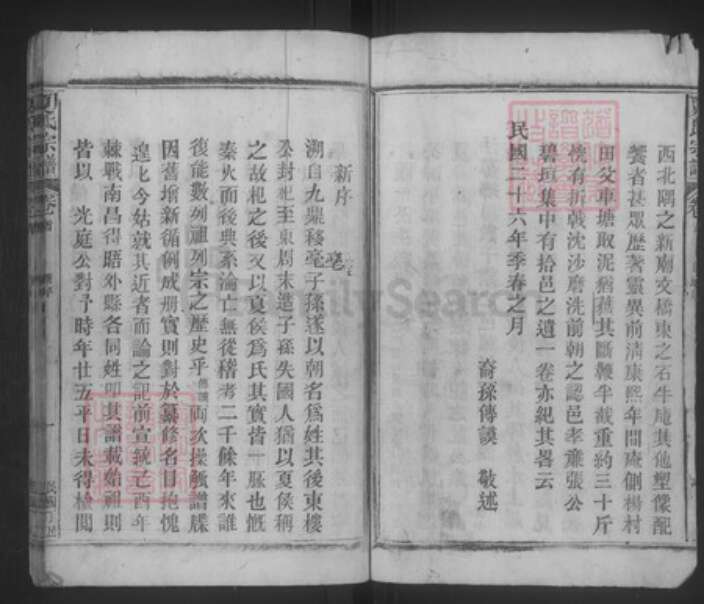 西北隅之新廟文橋東之石牛庵其他塑像配
饗者甚眾歷著靈異前清康熙年間庵側楊村
田父車塘取泥猶獲其斷鞭半截重約三十斤
恍有折戟沈沙磨洗前朝之認邑孝廉張公
碧垣集中有拾邑之遺一卷亦紀其畧云
裔孫傳謨 敬述
民國二十六年季春之月
新序
溯自九鼎移亳子孫遂以朝名為姓其後東樓
公封杞至東周末造子孫失國人猶以夏侯稱
之故杞之後又以夏侯為氏其實皆一脈也慨
秦火而後典系淪亡無從稽考二千餘年來誰
復能數列祖列宗之歷史乎 兩次操觚譜牒
因舊增新循例成册實則對於纂修名目抱愧
遑比今姑就其近者而論之記前宣統己酉年
棘戰南昌得晤外縣各同姓即其譜載始祖則
皆以 光庭公對予時年廿五平日未得檢閱
氏宗譜 卷首
FamilySearch